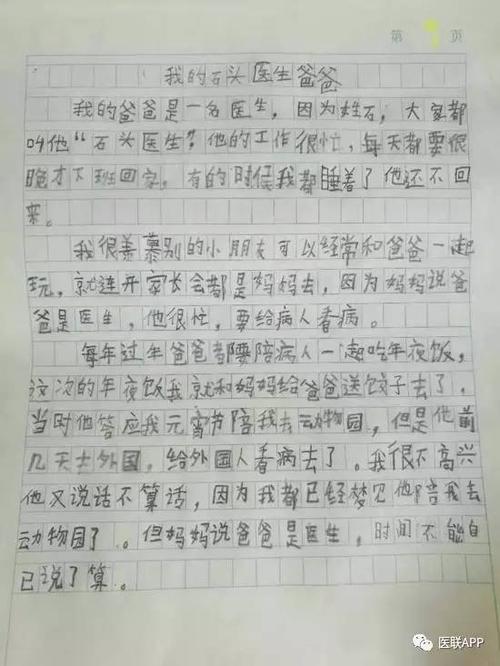 第 页
我的石头医生爸爸
我的爸爸是一名医生，因为姓石，大家都
叫他“石头医生”。他的工作很忙，每天都要很
晚才下班回家。有的时侯我都睡着了他还不回
来。
我很羡慕别的小朋友可以经常和爸爸一起
玩，就连开家长会都是妈妈去，因为妈妈说爸
爸是医生，他很忙，要给病人看病。
每年过年爸爸都要陪病人一起吃年夜饭，
这次的年夜饭我就和妈妈给爸爸送饺子去了。
当时他答应我元宵节陪我去动物园，但是他前
几天去外国，给外国人看病去了。我很不高兴
他又说话不算话，因为我都已经梦见他陪我去
动物园了。但妈妈说爸爸是医生，时间不能自
已说了算。
医联APP